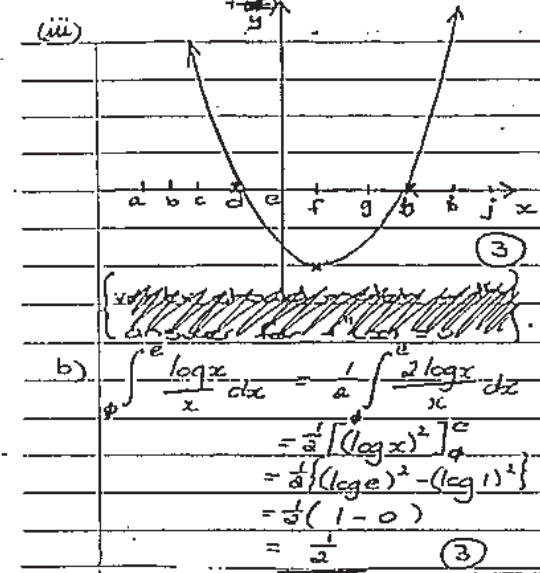 (iii)
y
a b c d e f g h i j x
3
b) ∫₁ᵉ logx/x dx = 1/2 ∫₁ᵉ 2logx/x dx
= 1/2 [(logx)²]₁ᵉ
= 1/2 {(loge)² - (log1)²}
= 1/2 (1 - 0)
= 1/2
3